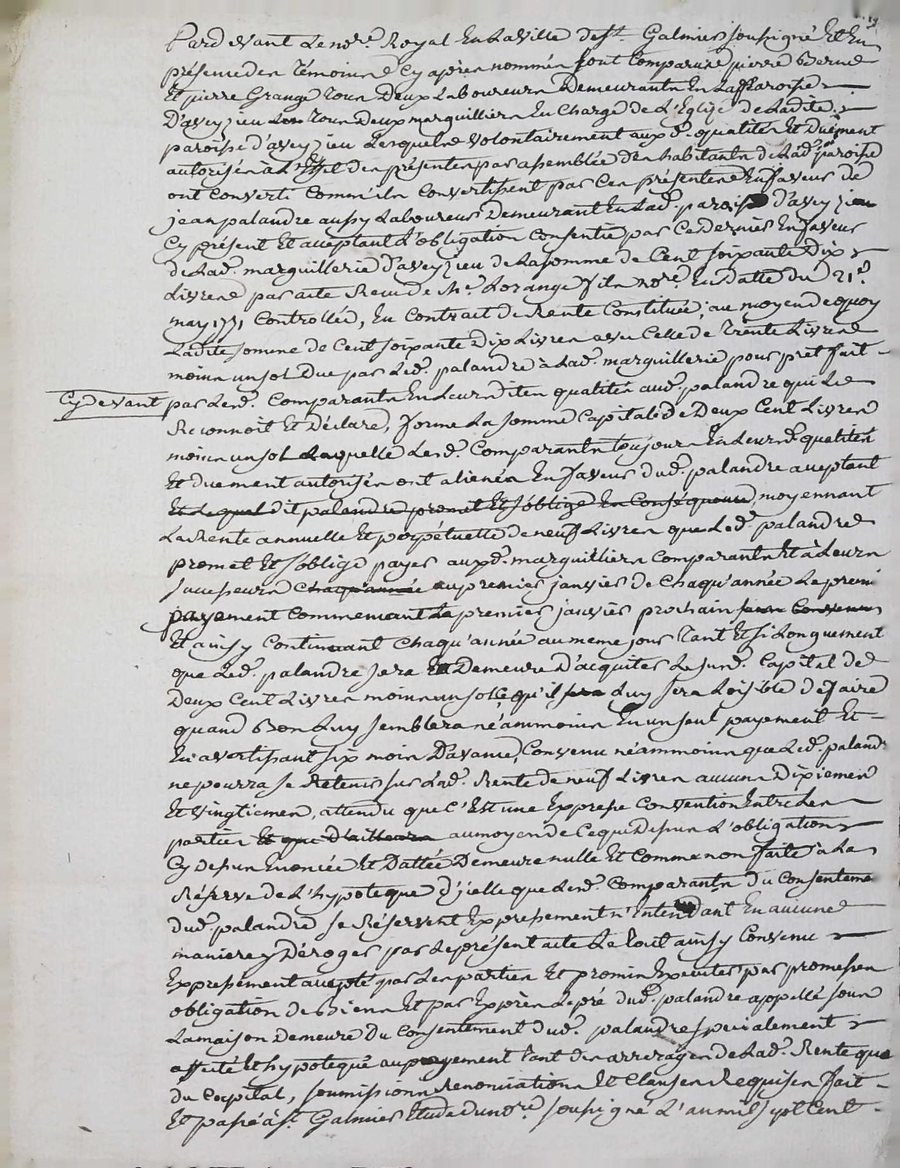 Pardevant Le no.re Royal En La Ville de St. Galmier soussigné Et En
présence des Témoins Cy après nommés sont Comparus pierre
Et pierre Grange Tous Deux Laboureurs Demeurants En La paroisse
D'aveyzieu Tous Deux marguilliers En Charge de L'Eglise de Ladite
paroisse d'aveyzieu Lesquels volontairement auxd. qualités Et Duëment
autorisés à L'Effet des présentes par assemblée des habitants de Lad. paroisse
ont Converti Comm'ils Convertissent par Ces présentes En faveur de
jean palandre aussy Laboureur Demeurant En Lad. paroisse d'aveyzieu
Cy présent Et acceptant L'obligation Consentie par Ce dernier En faveur
de Lad. marguillerie d'aveyzieu de La somme de Cent soixante Dix
Livres par acte Recu de Me. Lorange fils no.re En Datte du 21.
may 1771 Controllée, En Contrait de Rente Constituée, au moyen de quoy
Ladite somme de Cent soixante dix Livres avec Celle de Trente Livres
moins un sol Due par Led. palandre à Lad. marguillerie pour prêt fait
Cy devant par Lesd. Comparants En Leursdites qualités aud. palandre qui Le
Reconnoit Et Déclare, forme La somme Capitale de Deux Cent Livres
moins un sol Laquelle Lesd. Comparants toujours En Leursd. qualités
Et duement autorisés ont aliénés En faveur dud. palandre acceptant
Et Lequel dit palandre promet Et s'oblige En Conséquence, moyennant
La Rente annuelle Et perpétuelle de neuf Livres que Led. palandre
promet Et s'oblige payer auxd. marguilliers Comparants Et à Leurs
successeurs Chaqu'année au premier janvier de Chaqu'année Le premier
payement Commencant Le premier janvier prochain
Et ainsy Continuant Chaqu'année au meme jour Tant Et si Longuement
que Led. palandre sera En Demeure D'acquiter Le susd. Capital de
Deux Cent Livres moins un sol Ce qu'il sera Luy sera Loisible de faire
quand Bon Luy semblera néammoins En un seul payement Et
En avertissant six mois D'avance, Convenu néammoins que Led. palandre
ne pourra se Retenir sur Lad. Rente de neuf Livres aucuns Dixiemes
Et Vingtiemes, attendu que C'Est une Expresse Convention Entre Les
parties Et que D'ailleurs au moyen de Ce que Dessus L'obligation
Cy dessus Enoncée Et Dattée Demeure nulle Et Comme non faite à La
Réserve de L'hypoteque d'jcelle que Lesd. Comparants Du Consentement
Dud. palandre se Réservent Expressement n'Entendant En aucune
maniere y Déroger par Le présent acte Le Tout ainsy Convenu
Expressement accepté par Les parties Et promis Executer par promesses
obligation de Biens Et par Exprès Le pré dud. palandre appellé sous
La maison Demeure du Consentement dud. palandre specialement
affecté Et hypotequé au payement Tant des arrerages de Lad. Rente que
du Capital, soumissions Renonciations Et Clauses Requises fait
Et passé à St. Galmier Etude du no.re soussigné L'an mil sept Cent